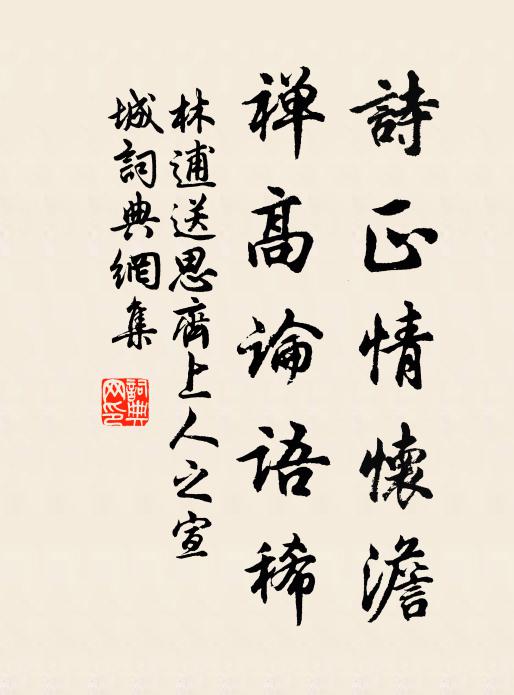 詩正情懷澹
禅高論語稀
林逋送思齊上人之宣
城詞典網集
詞典網印